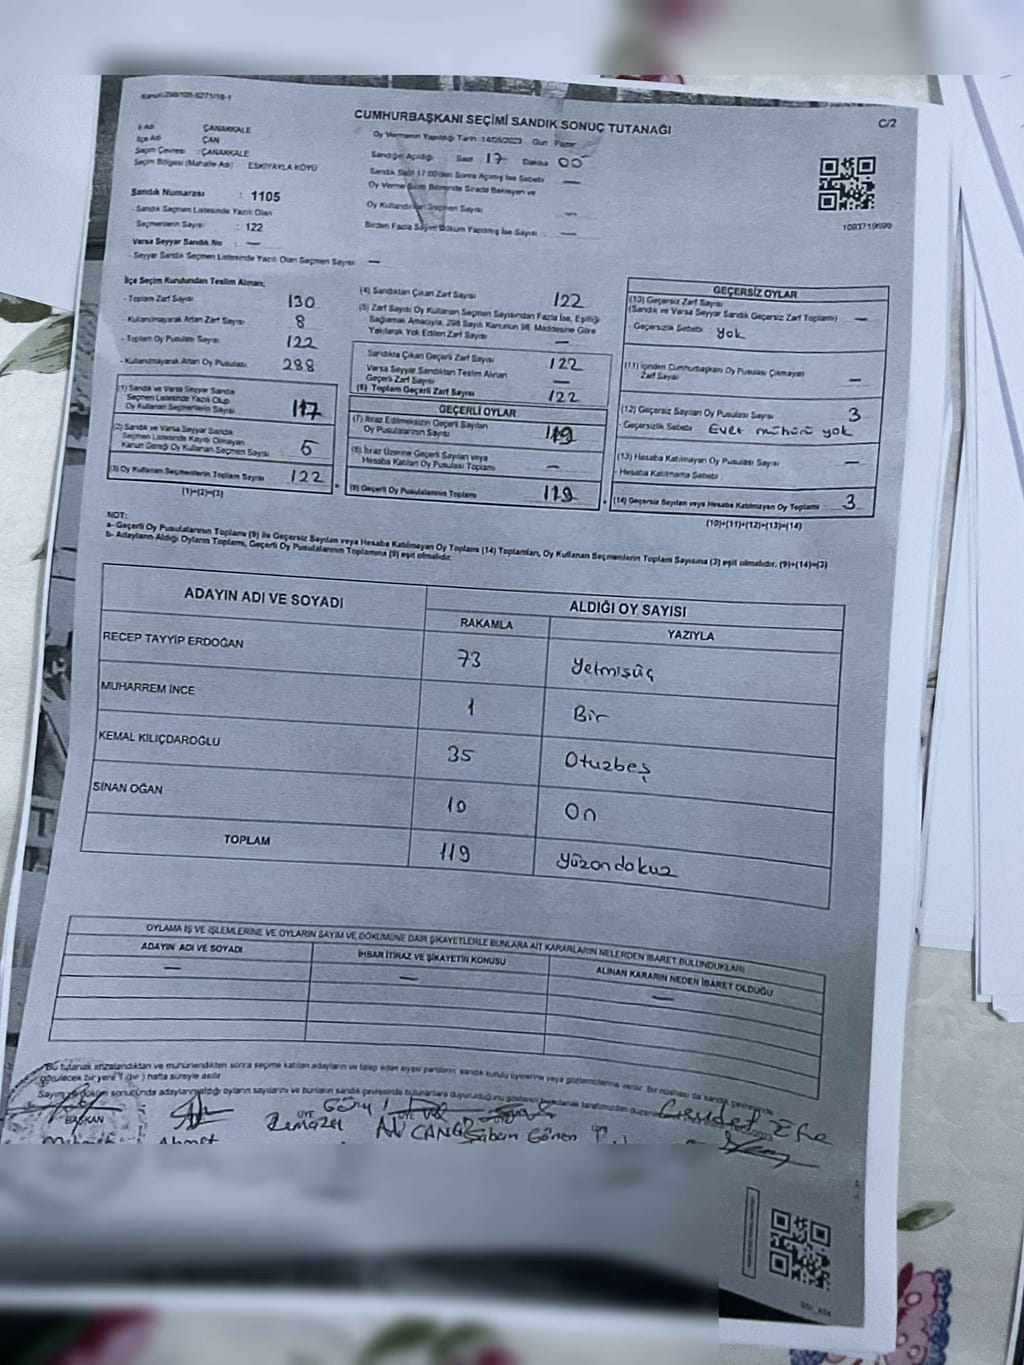 Kanun:298/105-6271/18-1
CUMHURBAŞKANI SEÇİMİ SANDIK SONUÇ TUTANAĞI
C/2
İl Adı ÇANAKKALE
İlçe Adı ÇAN
Seçim Çevresi : ÇANAKKALE
Seçim Bölgesi (Mahalle Adı) ESKİYAYLA KÖYÜ
Oy Vermenin Yapıldığı Tarih : 14/05/2023 Gün : Pazar
Sandığın Açıldığı Saat 17 Dakika 00
Sandık Saat 17:00'den Sonra Açılmış İse Sebebi —
Oy Verme Süresi Bitiminde Sırada Bekleyen ve
Oy Kullandırılan Seçmen Sayısı —
Birden Fazla Sayım Döküm Yapılmış İse Sayısı : —
1093719699
Sandık Numarası : 1105
- Sandık Seçmen Listesinde Yazılı Olan
Seçmenlerin Sayısı : 122
Varsa Seyyar Sandık No : —
- Seyyar Sandık Seçmen Listesinde Yazılı Olan Seçmen Sayısı —
İlçe Seçim Kurulundan Teslim Alınan;
- Toplam Zarf Sayısı 130
- Kullanılmayarak Artan Zarf Sayısı 8
- Toplam Oy Pusulası Sayısı 122
- Kullanılmayarak Artan Oy Pusulası 288
(1) Sandık ve Varsa Seyyar Sandık
Seçmen Listesinde Yazılı Olup
Oy Kullanan Seçmenlerin Sayısı 117
(2) Sandık ve Varsa Seyyar Sandık
Seçmen Listesinde Kaydı Olmayan
Kanun Gereği Oy Kullanan Seçmen Sayısı 5
(3) Oy Kullanan Seçmenlerin Toplam Sayısı 122
(1)+(2)=(3)
(4) Sandıktan Çıkan Zarf Sayısı 122
(5) Zarf Sayısı Oy Kullanan Seçmen Sayısından Fazla İse, Eşitliği
Sağlamak Amacıyla, 298 Sayılı Kanunun 98. Maddesine Göre
Yakılarak Yok Edilen Zarf Sayısı —
Sandıkta Çıkan Geçerli Zarf Sayısı 122
Varsa Seyyar Sandıktan Teslim Alınan
Geçerli Zarf Sayısı —
(6) Toplam Geçerli Zarf Sayısı 122
GEÇERLİ OYLAR
(7) İtiraz Edilmeksizin Geçerli Sayılan
Oy Pusulalarının Sayısı 119
(8) İtiraz Üzerine Geçerli Sayılan veya
Hesaba Katılan Oy Pusulası Toplamı —
(9) Geçerli Oy Pusulalarının Toplamı 119
GEÇERSİZ OYLAR
(10) Geçersiz Zarf Sayısı
(Sandık ve Varsa Seyyar Sandık Geçersiz Zarf Toplamı) —
- Geçersizlik Sebebi : yok
(11) İçinden Cumhurbaşkanı Oy Pusulası Çıkmayan
Zarf Sayısı —
(12) Geçersiz Sayılan Oy Pusulası Sayısı 3
- Geçersizlik Sebebi : Evet mühürü yok
(13) Hesaba Katılmayan Oy Pusulası Sayısı —
- Hesaba Katılmama Sebebi :
(14) Geçersiz Sayılan veya Hesaba Katılmayan Oy Toplamı 3
(10)+(11)+(12)+(13)=(14)
NOT:
a- Geçerli Oy Pusulalarının Toplamı (9) ile Geçersiz Sayılan veya Hesaba Katılmayan Oy Toplamı (14) Toplamları, Oy Kullanan Seçmenlerin Toplam Sayısına (3) eşit olmalıdır. (9)+(14)=(3)
b- Adayların Aldığı Oyların Toplamı, Geçerli Oy Pusulalarının Toplamına (9) eşit olmalıdır.
ADAYIN ADI VE SOYADI ALDIĞI OY SAYISI
RAKAMLA YAZIYLA
RECEP TAYYİP ERDOĞAN 73 Yetmişüç
MUHARREM İNCE 1 Bir
KEMAL KILIÇDAROĞLU 35 Otuzbeş
SİNAN OĞAN 10 On
TOPLAM 119 yüzondokuz
OYLAMA İŞ VE İŞLEMLERİNE VE OYLARIN SAYIM VE DÖKÜMÜNE DAİR ŞİKAYETLERLE BUNLARA AİT KARARLARIN NELERDEN İBARET BULUNDUKLARI
ADAYIN ADI VE SOYADI İHBAR İTİRAZ VE ŞİKAYETİN KONUSU ALINAN KARARIN NEDEN İBARET OLDUĞU
— — —
Bu tutanak imzalandıktan ve mühürlendikten sonra seçime katılan adayların ve talep eden siyasi partilerin sandık kurulu üyelerine veya gözlemcilerine verilir. Bir nüshası da sandık çevresinde
görülecek bir yere 1 (bir) hafta süreyle asılır.
Sayım ve döküm sonucunda adayların aldığı oyların sayılarını ve bunların sandık çevresinde bulunanlara duyurulduğunu gösteren
BAŞKAN ÜYE
Ahmet Ramazan Şaban Gönen Efe